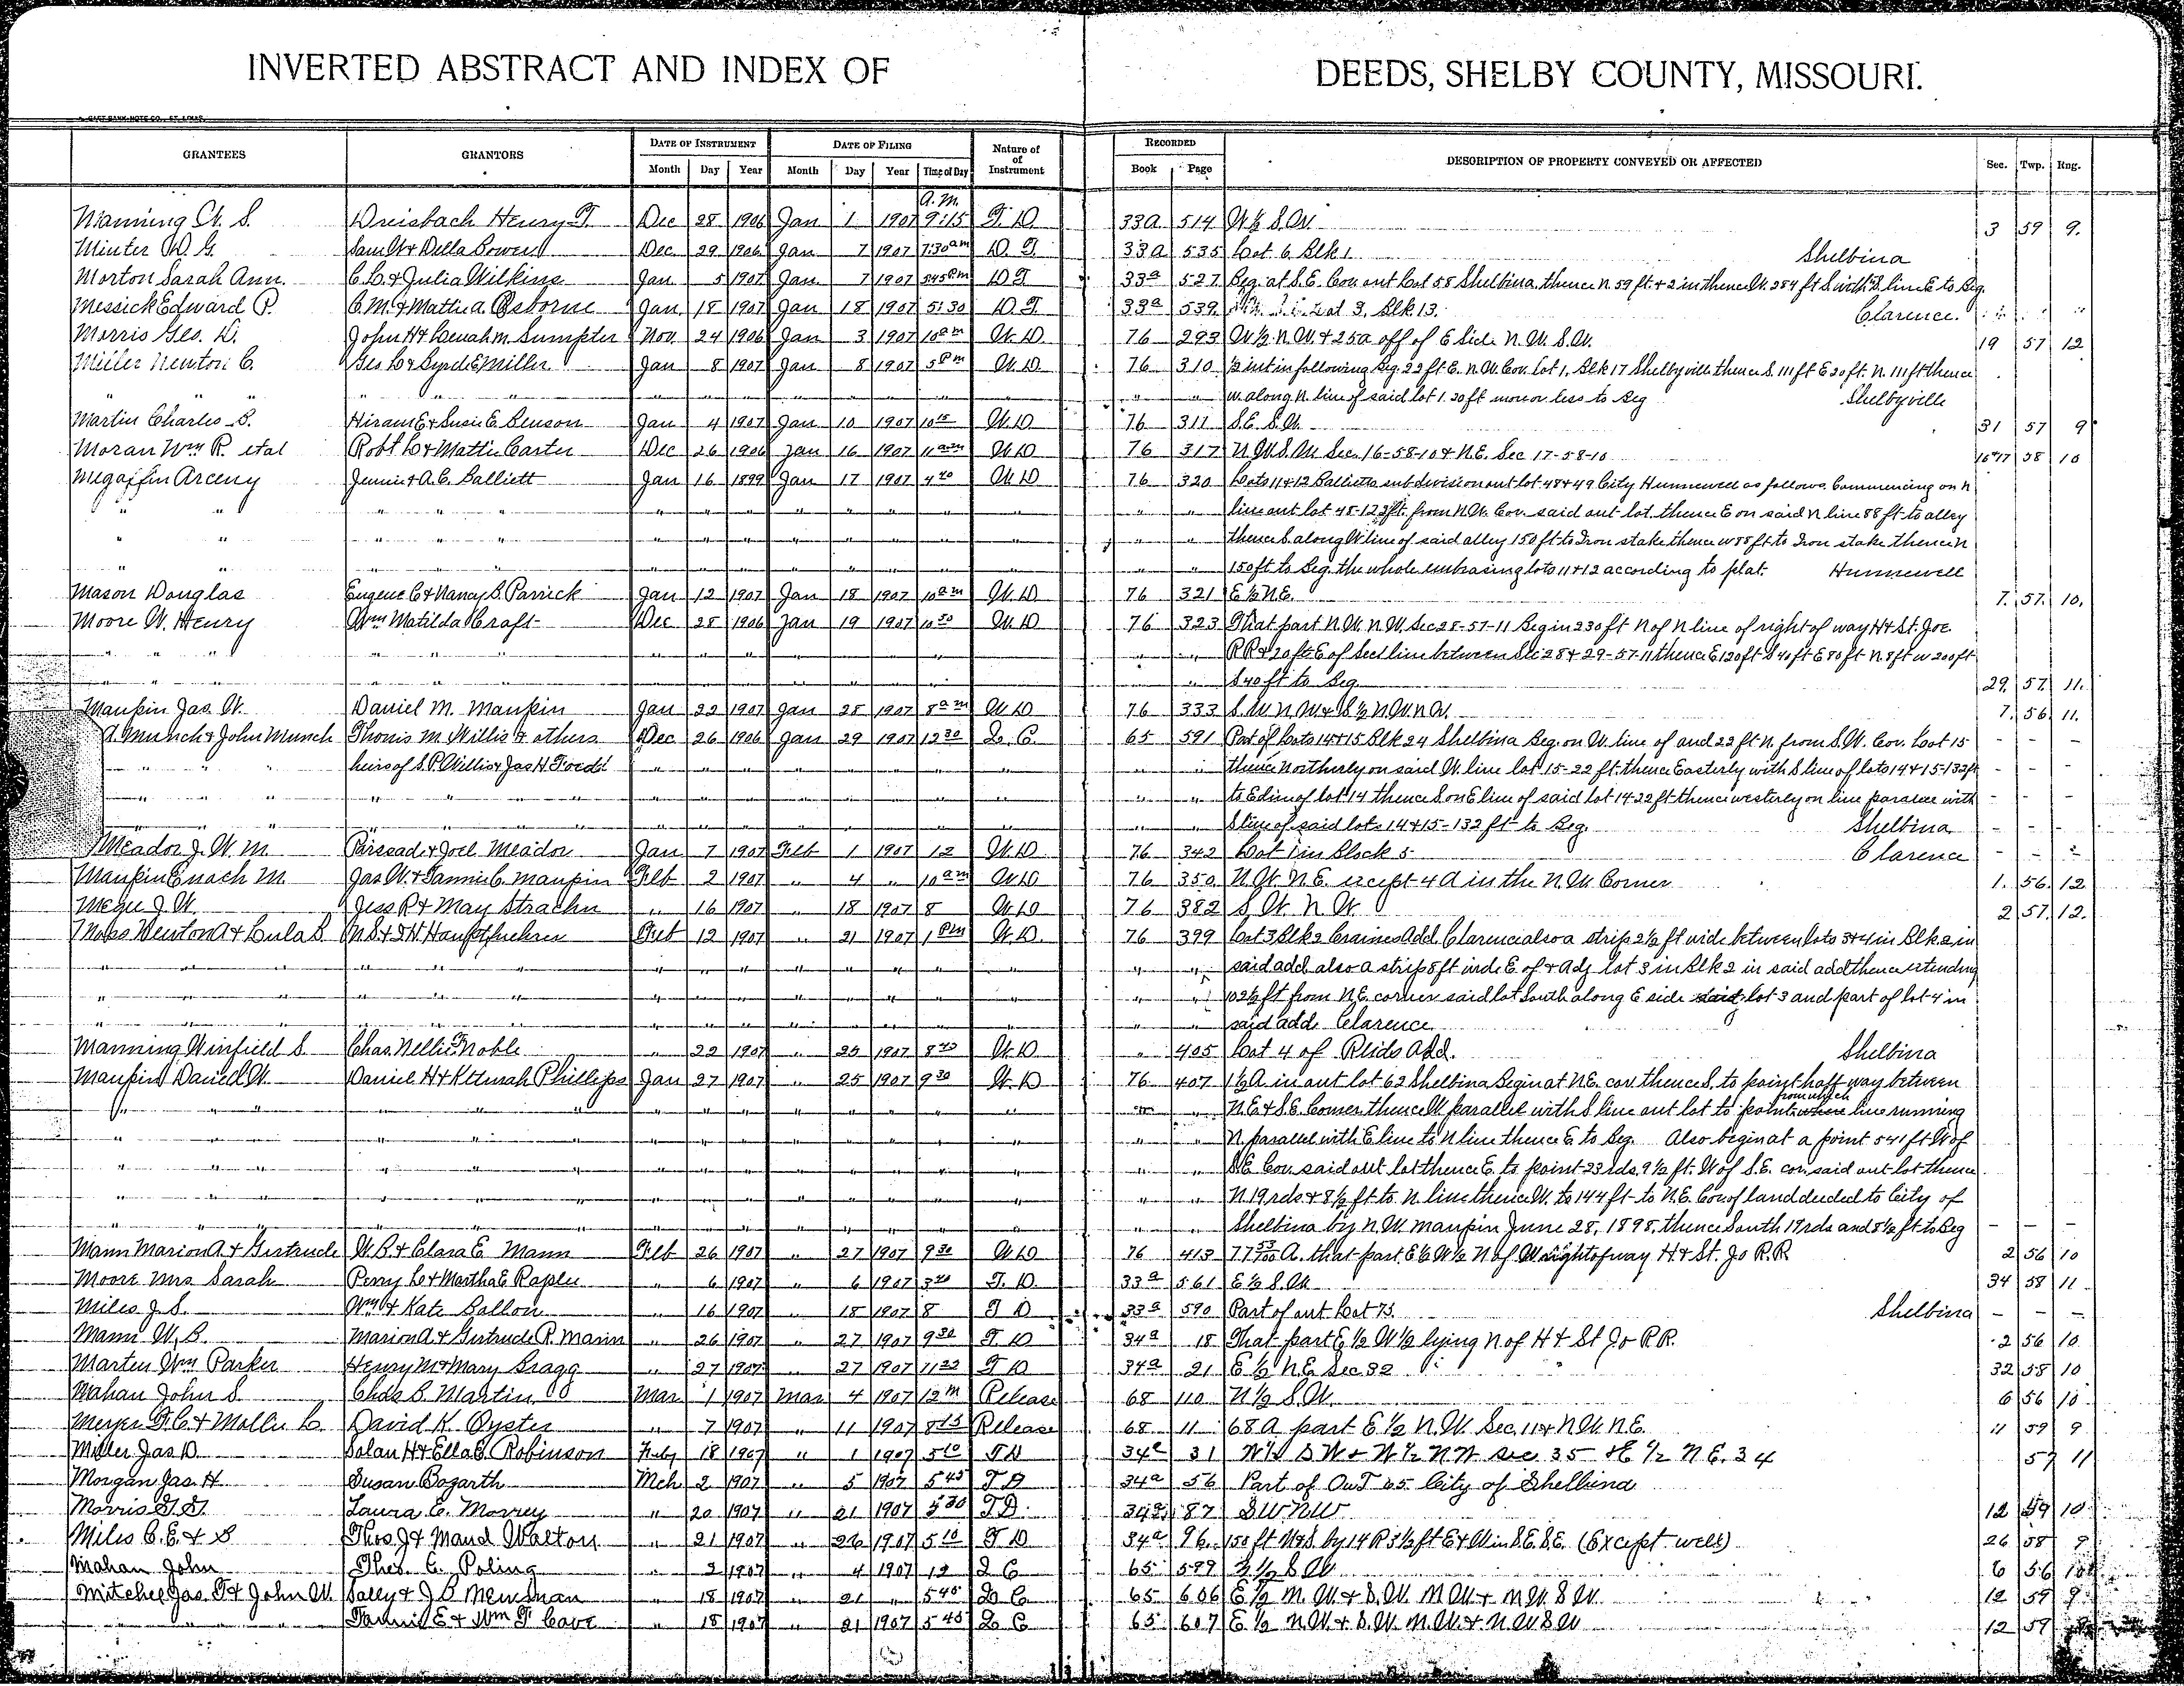 INVERTED ABSTRACT AND INDEX OF DEEDS, SHELBY COUNTY, MISSOURI.
GRANTEES GRANTORS DATE OF INSTRUMENT DATE OF FILING Nature of of Instrument RECORDED DESCRIPTION OF PROPERTY CONVEYED OR AFFECTED Sec. Twp. Rng.
Month Day Year Month Day Year Time of Day Book Page
A.M.
Manning W. S. Dreisbach Henry T Dec 28 1906 Jan 1 1907 9:15 T. D. 33a 514 W ½ S.W. 3 59 9.
Minter W. G. Sam W & Della Bowen Dec 29 1906 Jan 7 1907 7:30 am D. T. 33a 535 Lot 6 Blk 1 Shelbina
Morton Sarah Ann. C. L. & Julia Wilkins Jan 5 1907 Jan 7 1907 3:45 Pm D T 33a 527 Beg. at S.E. Cor. out Lot 58 Shelbina, thence N 59 ft. & 2 in thence W. 284 ft S with S. line E to Beg.
Messick Edward P. & Mattie A. Osborne Jan 18 1907 Jan 18 1907 5:30 D. T. 33a 539 Lot 3. Blk 13. Clarence.
Morris Geo. D. John H & Beulah M Sumpter Nov. 24 1906 Jan 3 1907 10 am W. D. 76 293 W ½ N.W. & 25 a off of E Side N.W. S.W. 19 57 12
Miller Newton C. Geo L & Byrd E Miller Jan 8 1907 Jan 8 1907 5 Pm W. D. 76 310 ½ int in following Beg. 22 ft E. N.W. Cor. Lot 1, Blk 17 Shelbyville thence S. 111 ft E 20 ft. N. 111 ft thence
" " " " " " W. along N. line of said lot 1. 20 ft more or less to Beg Shelbyville
Martin Charles B. Hiram E & Susie E. Benson Jan 4 1907 Jan 10 1907 10 15 W. D 76 311 S.E. S.W. 31 57 9
Moran Wm R. etal Robt L & Mattie Carter Dec 26 1906 Jan 16 1907 11 am W D 76 317 N.W. S.W. Sec. 16-58-10 & N.E. Sec 17-58-10 16&17 58 10
Megaffin Arceny Jennie & A. C. Balliett Jan 16 1899 Jan 17 1907 4 40 W D 76 320 Lots 11 & 12 Ballietts subdivision out lot 48 & 49 City Hunnewell as follows. Commencing on N
" " " " " " line out lot 48-123 ft. from N.W. Cor. said out lot. thence E on said N line 88 ft to alley
" " " " " " thence S. along W line of said alley 150 ft to Iron stake thence W 88 ft to Iron stake thence N
" " " " " " 150 ft to Beg. the whole embrasing lots 11 & 12 according to plat. Hunnewell
Mason Douglas Eugene C & Nancy S. Parrick Jan 12 1907 Jan 18 1907 10 am W. D 76 321 E ½ N.E. 7. 57. 10.
Moore W. Henry Wm Matilda Craft Dec 28 1906 Jan 19 1907 10 30 W D 76 323 That part N.W. N.W. Sec 28-57-11 Begin 230 ft N of N line of right of way H & St. Joe
" " " " " " RR & 20 ft E of Sect line between Sec 28 & 29-57-11 thence E 120 ft S 40 ft E 80 ft N. 8 ft W 200 ft
" " " " " " S 40 ft to Beg. 29. 57. 11.
Maupin Jas. W. Daniel M. Maupin Jan 22 1907 Jan 28 1907 8 am W D 76 333 S.W N.W & S ½ N.W. N.W. 7. 56. 11.
A. Munch & John Munch Thomis M. Willis & others Dec 26 1906 Jan 29 1907 12 30 Q. C. 65 591 Part of Lots 14 & 15 Blk 24 Shelbina Beg. on W. line of and 22 ft N. from S.W. Cor. Lot 15
" " heirs of S. P. Willis & Jas H. " " " " thence Northerly on said W. line lot 15-22 ft. thence Easterly with S line of lots 14 & 15-132 ft
" " " " " " to E line of lot 14 thence S on E line of said lot 14 22 ft thence westerly on line paralee with
" " " " " " S line of said lots 14 & 15-132 ft to Beg. Shelbina
Meador J. W. M. & Joel Meador Jan 7 1907 Feb 1 1907 12 W. D. 76 342 Lot 1 in Block 5 Clarence
Maupin Enoch M. Jas. W. & Fannie C. Maupin Feb 2 1907 " 4 " 10 am W D 76 350 N.W. N.E. except 4 A in the N.W Corner 1. 56. 12
J. W. Jess R & May Strachn " 16 1907 " 18 1907 8 W. D 76 382 S. W. N. W. 2 57. 12.
Moss Newton A & Eula B Feb 12 1907 " 21 1907 1 Pm W. D. 76 399 Lot 3 Blk 2 Craines Add. Clarence also a strip 2½ ft wide between lots 3 & 4 in Blk 2 in
" " " " " " said add. also a strip 8 ft wide E of & Adj lot 3 in Blk 2 in said add thence extending
" " " " " " 102½ ft from N.E. corner said lot South along E side said lot 3 and part of lot 4 in
" " " " said add. Clarence
Manning Winfield S. Chas. Nellie F Noble " 22 1907 " 25 1907 8 40 W. D " 405 Lot 4 of Reids Add. Shelbina
Maupin David W. Daniel H & Phillips Jan 27 1907 " 25 1907 9 30 W. D 76 407 1½ A. in out lot 62 Shelbina Begin at N.E. cor. thence S. to point half way between
" " " " " " N.E & S.E. Corner thence W parallel with S line out lot to point from which where line running
" " " " " " N. parallel with E line to N line thence E. to Beg. Also begin at a point 541 ft W of
" " " " " " S.E. Cor. said out lot thence E. to point 23 rds. 9½ ft. W of S.E. cor. said out lot thence
" " " " " " N. 19 rds & 8½ ft to N. line thence W. to 144 ft to N.E. Cor of land deeded to City of
" " " " " " Shelbina by N. W. Maupin June 28, 1898, thence South 19 rds and 8½ ft to Beg
Mann Marion A & Gertrude W. B. & Clara E Mann Feb 26 1907 " 27 1907 9 30 W D 76 413 77 53/100 A. that part E ½ W ½ N of right of way H & St. Jo R.R 2 56 10
Moore Mrs Sarah Perry L & Martha E Raplee " 6 1907 " 6 1907 3 20 T. D. 33a 561 E ½ S.W. 34 58 11
Miles J. S. Wm & Kate Ballon " 16 1907 " 18 1907 8 T D 33a 590 Part of out Lot 73. Shelbina
Mann W. B. Marion A & Gertrude R. Mann " 26 1907 " 27 1907 9 30 T. D 34a 18 That part E ½ W ½ lying N of H & St Jo R.R. 2 56 10
Marten Wm Parker Henry M & Mary Bragg " 27 1907 27 1907 11 23 T D 34a 21 E ½ N.E Sec 32 32 58 10
Mahan John S. Chas. B. Martin Mar 1 1907 Mar 4 1907 12 m Release 68 110 N ½ S.W. 6 56 10
Meyer F. C. & Mollie L. David K. Oyster " 7 1907 " 11 1907 8 15 Release 68 11 68 A part E ½ N.W. Sec. 11 & N.W. N.E. 11 59 9
Miller Jas. D. Solan H & Ella C. Robinson Feby 18 1907 " 1 1907 5 10 T D 34a 31 W ½ S W & N ½ N W sec 35 & E ½ N E. 34 57 11
Morgan Jas. H. Susan Bogarth Mch 2 1907 " 5 1907 5 45 T D 34a 56 Part of OuT 65. City of Shelbina
Morris Laura C. Morrey " 20 1907 " 21 1907 5 30 T D. 34a 87 S W N W 12 59 10
Miles C. E. & S Thos J & Maud Walton " 21 1907 " 26 1907 5 10 T D 34a 96. 150 ft N & S by 14 R 3½ ft E & W in S.E. S.E. (Except well) 26 58 9
Mahan John Thos. C. Poling " 2 1907 " 4 1907 12 Q C 65 599 ½ S W 6 56 10
Mitchel Jas. T & John W. Sally & J B Newman " 18 1907 " 21 " 5 45 Q C 65 606 E ½ N. W. & S. W. N W & N W S W 12 59 9
" " Fannie E & Wm T Cave " 18 1907 " 21 1907 5 45 Q C 65 607 E. ½ N. W. & S. W. N. W. & N W S W 12 59